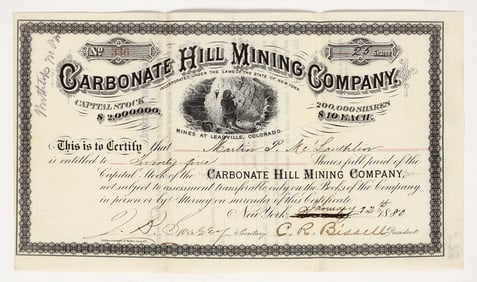 No 346
25 Shares
CARBONATE HILL MINING COMPANY.
INCORPORATED UNDER THE LAWS OF THE STATE OF NEW YORK
CAPITAL STOCK
$ 2,000,000.
200,000 SHARES
$ 10 EACH.
MINES AT LEADVILLE, COLORADO.
This is to Certify that Martin P. McLaughlin
is entitled to Twenty five Shares full paid of the
Capital Stock of the CARBONATE HILL MINING COMPANY,
not subject to assessment transferable only on the Books of the Company
in person or by Attorney on surrender of this Certificate.
New York January 12th 1880
Secretary C. R. Bissell President